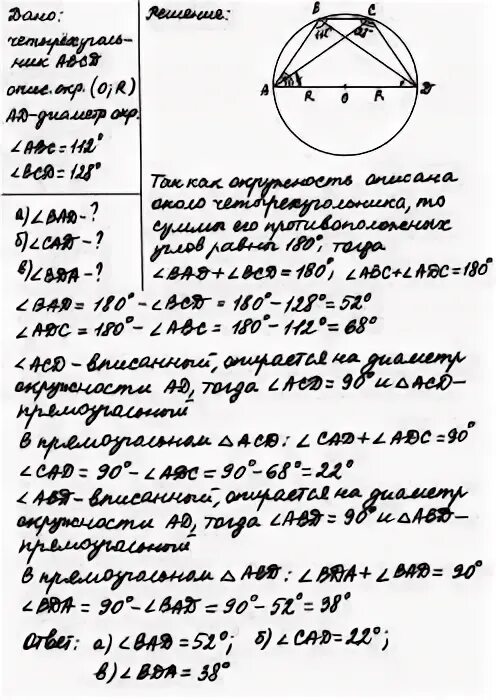 Дано:
четырёхуголь-
ник ABCD
опис. окр. (O; R)
AD-диаметр окр.
∠ABC=112°
∠BCD=128°
а) ∠BAD-?
б) ∠CAD-?
в) ∠BDA-?
Решение:
B C
A R O R D
Так как окружность описана
около четырехугольника, то
суммы его противоположных
углов равны 180°, тогда
∠BAD+∠BCD=180°, ∠ABC+∠ADC=180°
∠BAD=180°-∠BCD=180°-128°=52°
∠ADC=180°-∠ABC=180°-112°=68°
∠ACD-вписанный, опирается на диаметр
окружности AD, тогда ∠ACD=90° и △ACD-
прямоугольный
В прямоугольном △ACD: ∠CAD+∠ADC=90°
∠CAD=90°-∠ADC=90°-68°=22°
∠ABD-вписанный, опирается на диаметр
окружности AD, тогда ∠ABD=90° и △ABD-
прямоугольный
В прямоугольном △ABD: ∠BDA+∠BAD=90°
∠BDA=90°-∠BAD=90°-52°=38°
Ответ: а) ∠BAD=52°; б) ∠CAD=22°;
в) ∠BDA=38°